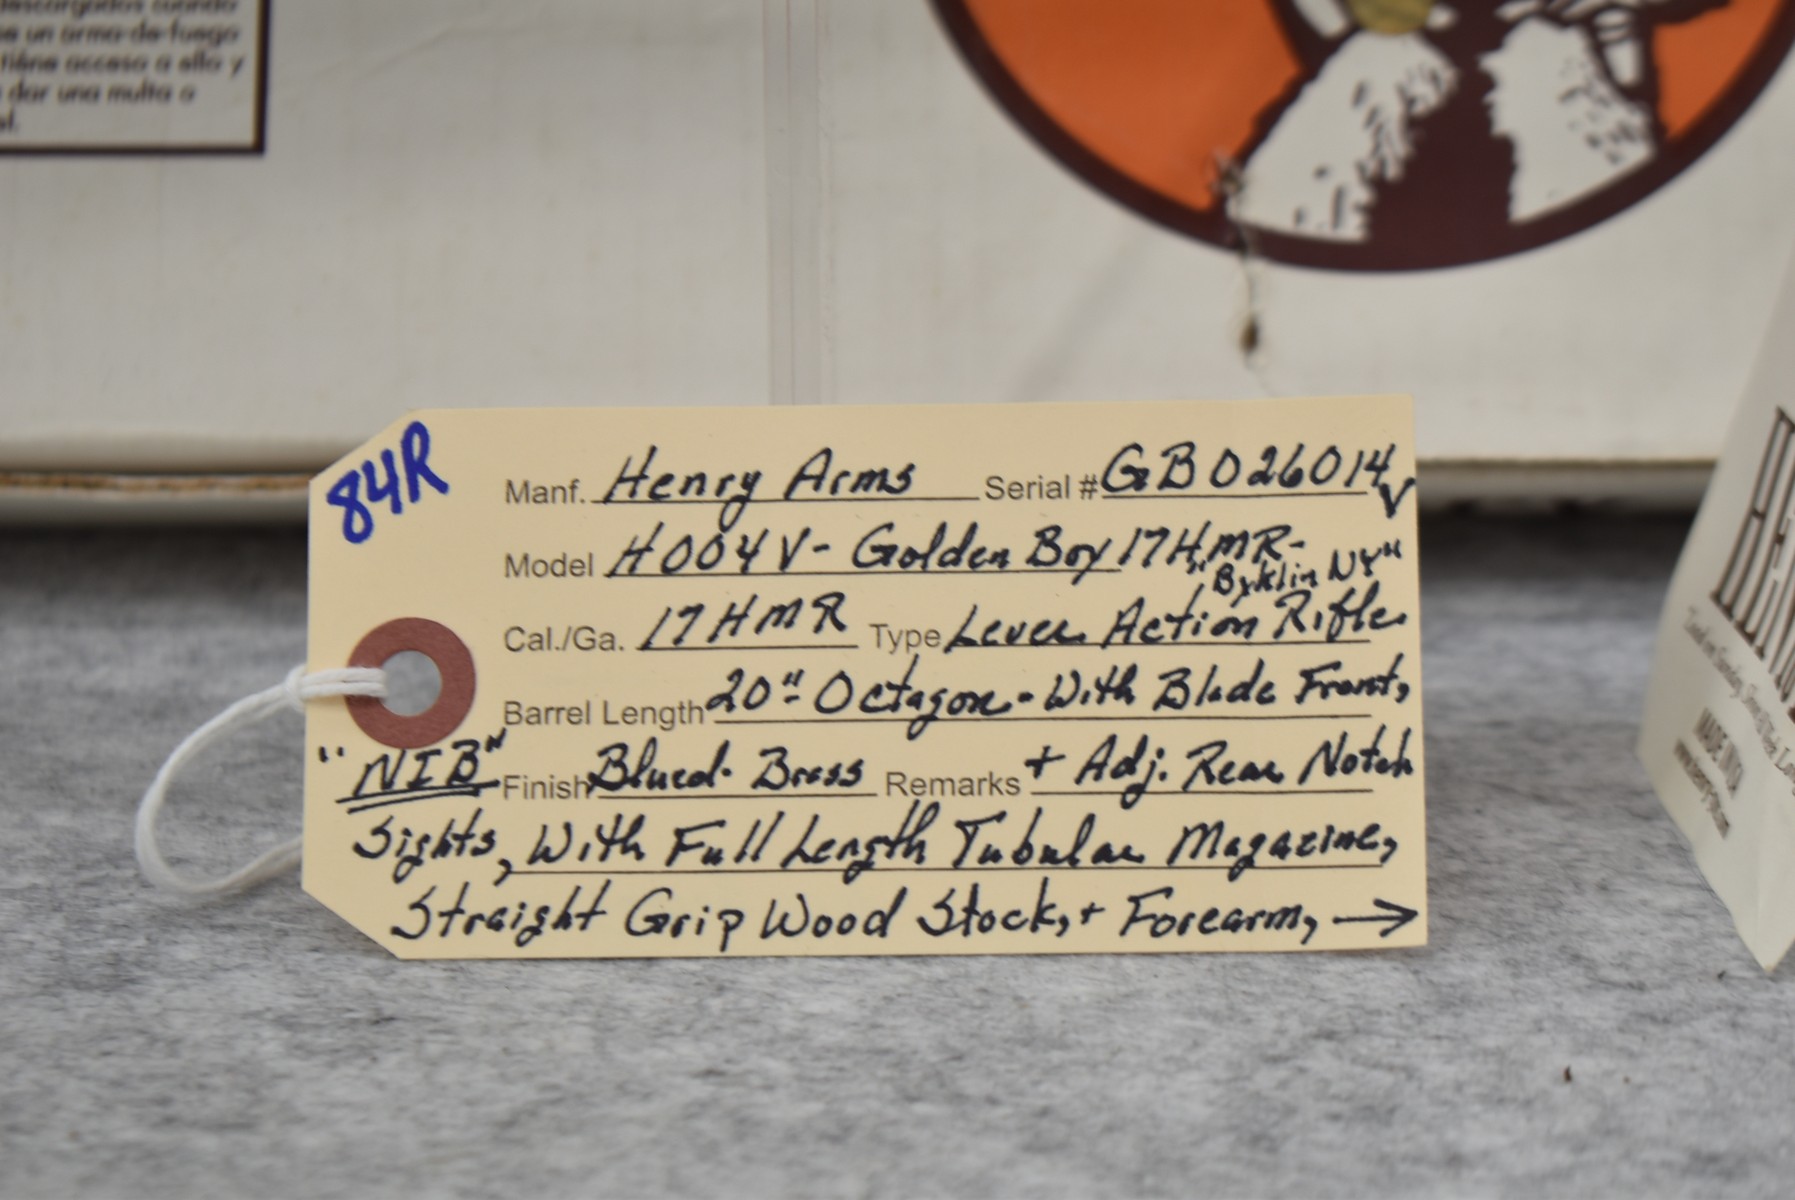 descargados cuando
se un arma-de-fuego
tiéne acceso a ello y
dar una multa o
84R
Manf. Henry Arms Serial # GB026014 V
Model H004V - Golden Boy 17HMR -
"Byklin NY"
Cal./Ga. 17HMR Type Lever Action Rifle
Barrel Length 20" Octagon - With Blade Front,
"NIB" Finish Blued - Brass Remarks + Adj. Rear Notch
Sights, With Full Length Tubular Magazine,
Straight Grip Wood Stock, + Forearm, →
HEN
MADE IN